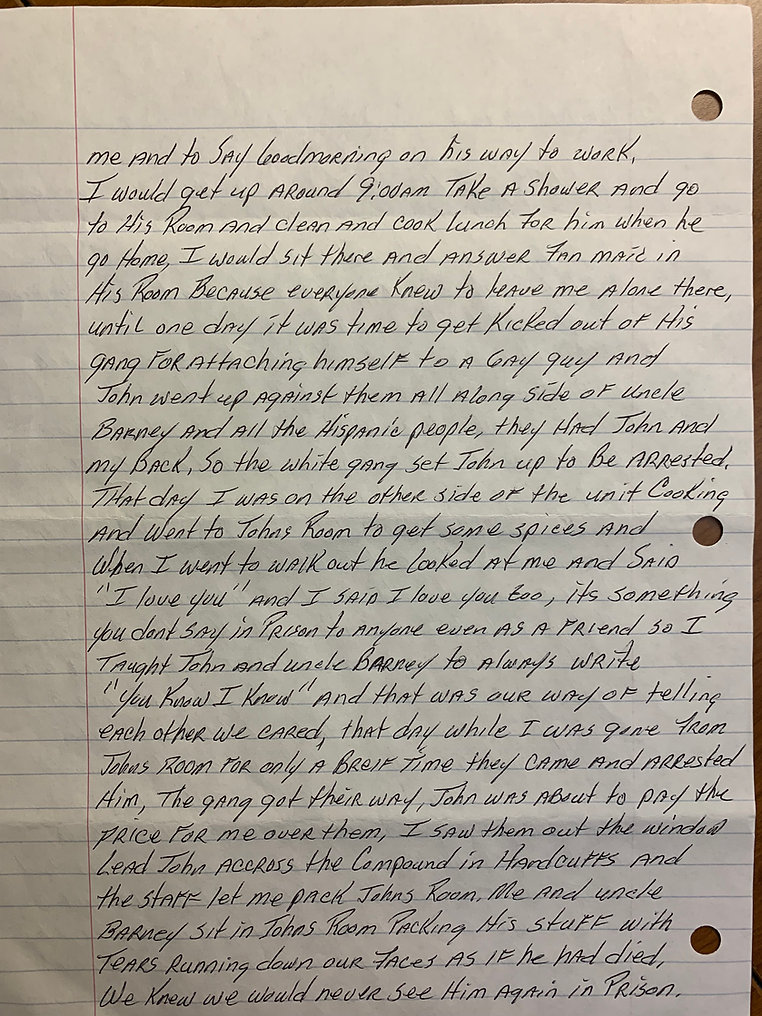 me And to SAy Goodmorning on his way to work,
I would get up Around 9:00am Take A Shower And go
to His Room And clean And cook lunch For him when he
go Home, I would sit there And Answer Fan mail in
His Room Because everyone Knew to leave me Alone there,
until one day it was time to get Kicked out of His
gang For Attaching himself to a Gay guy And
John went up Against them All Along Side of uncle
Barney And All the Hispanic people, they Had John And
my Back, So the white gang set John up to Be Arrested.
That day I was on the other side of the unit Cooking
And Went to Johns Room to get some spices And
When I went to walk out he looked At me And Said
"I love you" And I said I love you too, its something
you dont say in Prison to Anyone even As A Friend so I
Taught John and uncle Barney to Always write
"You Know I Know" And that was our way of telling
each other we cared, that day while I was gone From
Johns Room For only A Breif Time they came And Arrested
Him, The gang got their way, John was About to pay the
price For me over them, I saw them out the window
Lead John Accross the Compound in Handcuffs And
the staff let me pack Johns Room. Me And uncle
Barney sit in Johns Room Packing His stuff with
Tears Running down our Faces As if he had died,
We Knew we would never see Him Again in Prison.